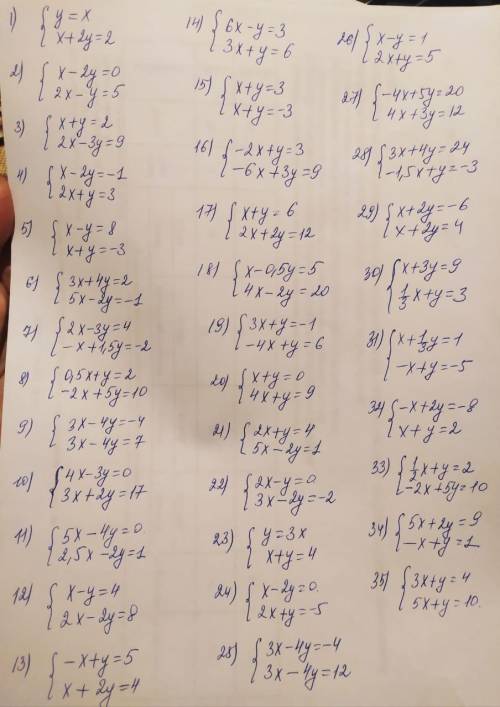 1) { y=x
x+2y=2
2) { x-2y=0
2x-y=5
3) { x+y=2
2x-3y=9
4) { x-2y=-1
2x+y=3
5) { x-y=8
x+y=-3
6) { 3x+4y=2
5x-2y=-1
7) { 2x-3y=4
-x+1,5y=-2
8) { 0,5x+y=2
-2x+5y=10
9) { 3x-4y=-4
3x-4y=7
10) { 4x-3y=0
3x+2y=17
11) { 5x-4y=0
2,5x-2y=1
12) { x-y=4
2x-2y=8
13) { -x+y=5
x+2y=4
14) { 6x-y=3
3x+y=6
15) { x+y=3
x+y=-3
16) { -2x+y=3
-6x+3y=9
17) { x+y=6
2x+2y=12
18) { x-0,5y=5
4x-2y=20
19) { 3x+y=-1
-4x+y=6
20) { x+y=0
4x+y=9
21) { 2x+y=4
5x-2y=1
22) { 2x-y=0
3x-2y=-2
23) { y=3x
x+y=4
24) { x-2y=0.
2x+y=-5
25) { 3x-4y=-4
3x-4y=12
26) { x-y=1
2x+y=5
27) { -4x+5y=20
4x+3y=12
28) { 3x+4y=24
-1,5x+y=-3
29) { x+2y=-6
x+2y=4
30) { x+3y=9
1/3x+y=3
31) { x+1/3y=1
-x+y=-5
32) { -x+2y=-8
x+y=2
33) { 1/2x+y=2
-2x+5y=10
34) { 5x+2y=9
-x+y=1
35) { 3x+y=4
5x+y=10.